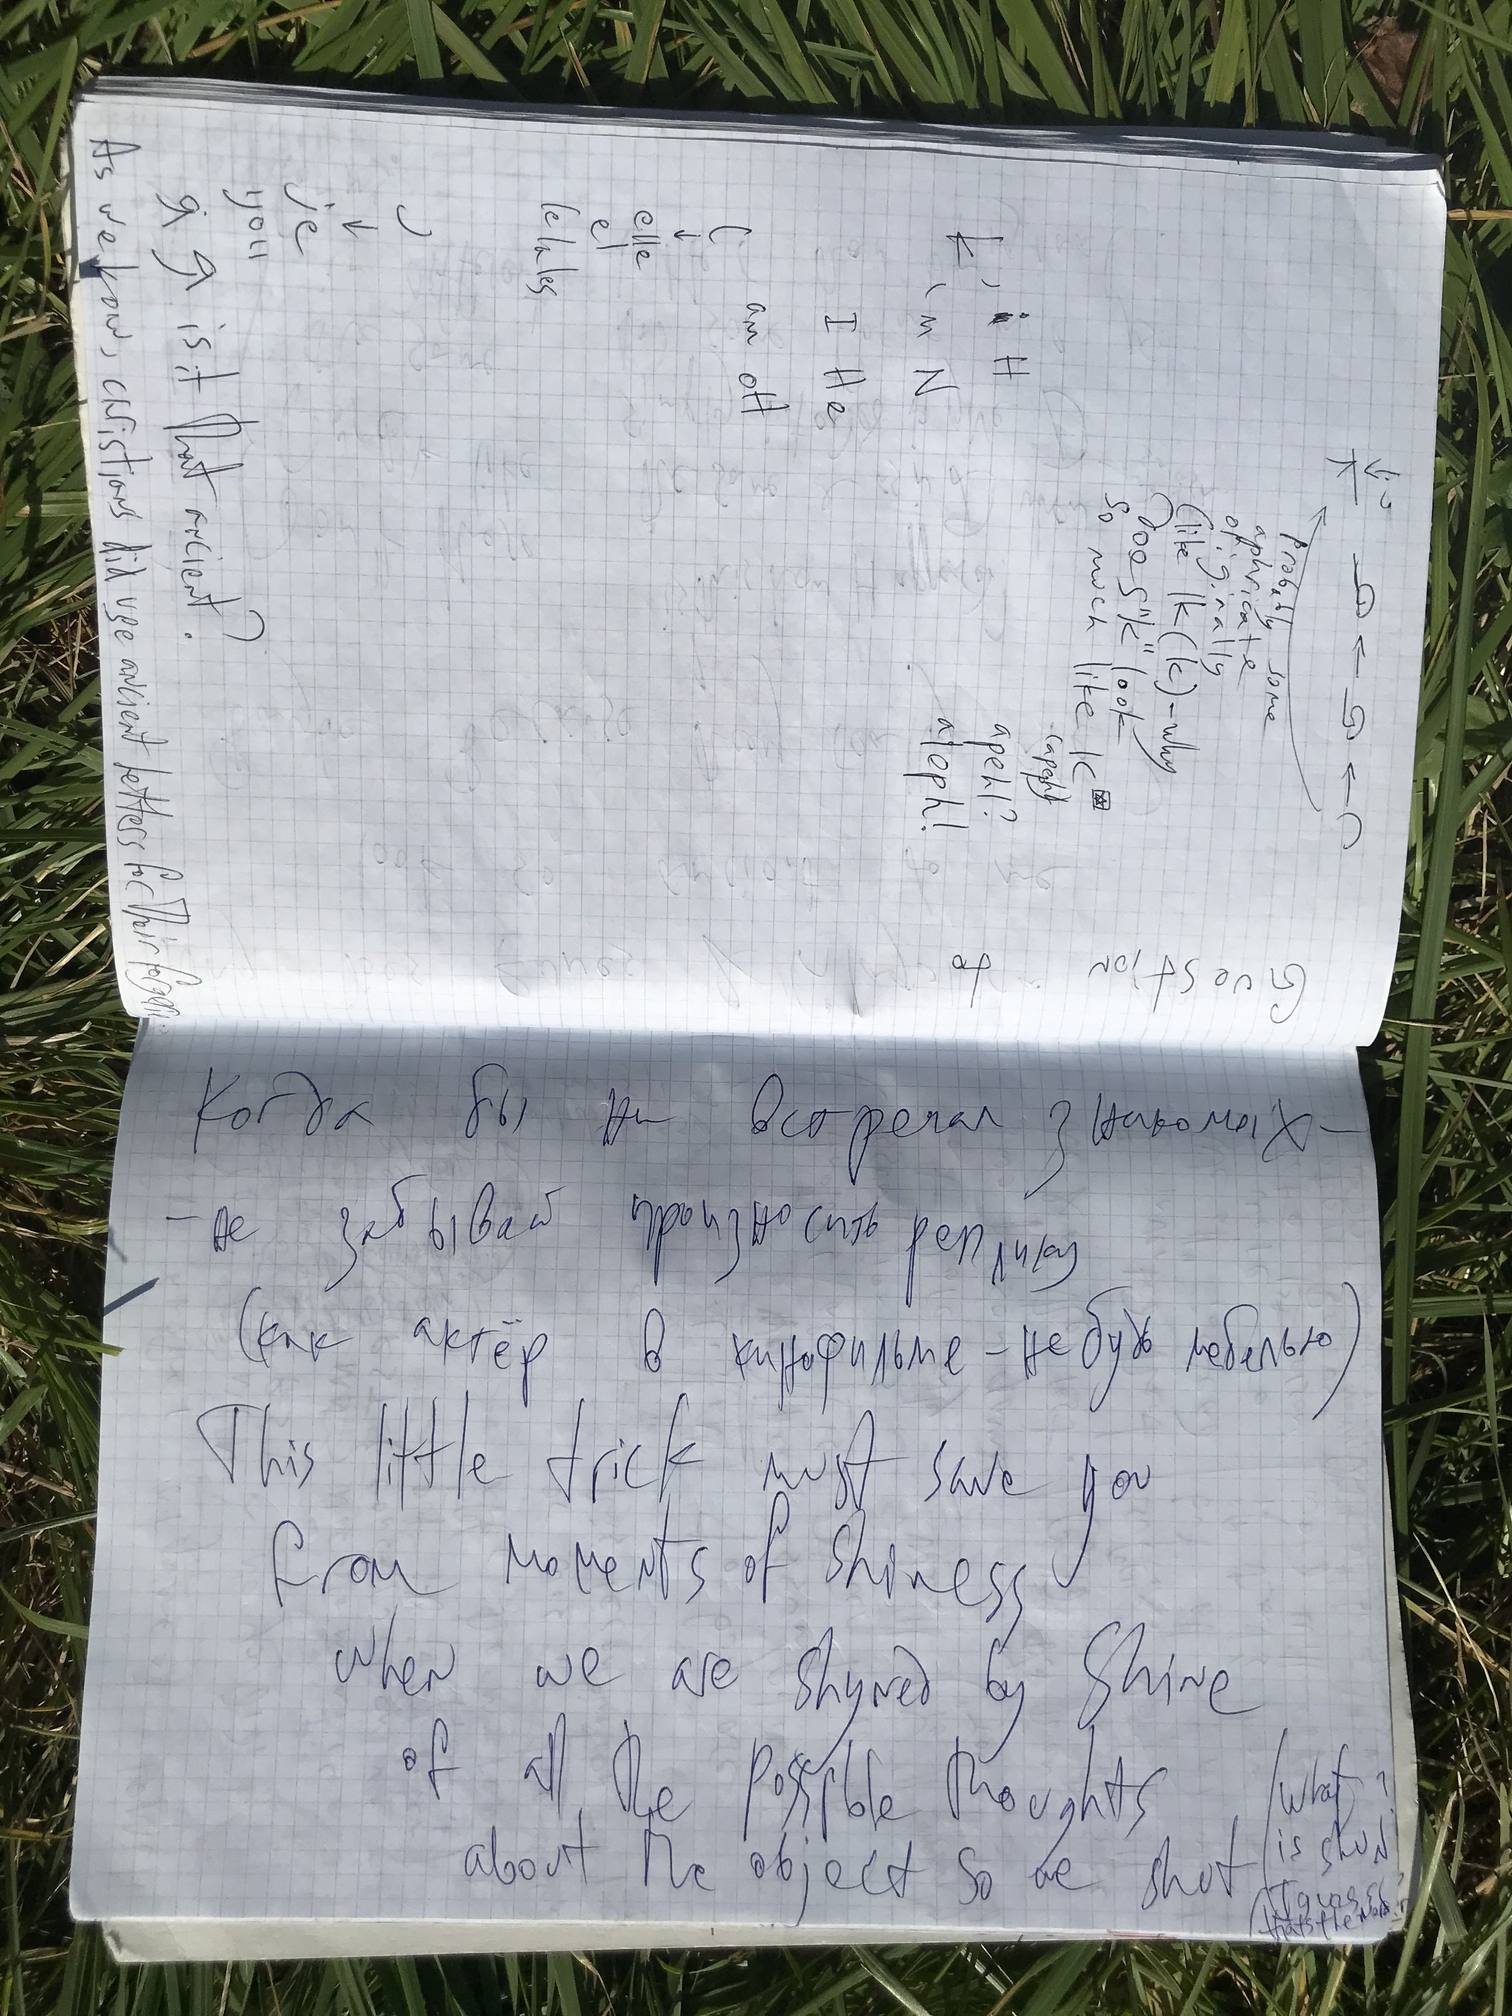 Probably some
aphricate
originally
(like lk(k)-why
does "k" look
so much like K
(apeh)
apeh!?
aleph!
Question
to
L, i H
, m N
I He
am oH
elle
el
je
you
Я Я is it that ancient?
As we know, christians did use ancient letters for their
Когда бы ни встречал знакомых-
-не забывай произносить реплику
(как актёр в кинофильме-не будь мебелью)
This little trick must save you
from moments of shiness
when we are shyned by shine
of all the possible thoughts
about the object so we shut
(what?
is shut?